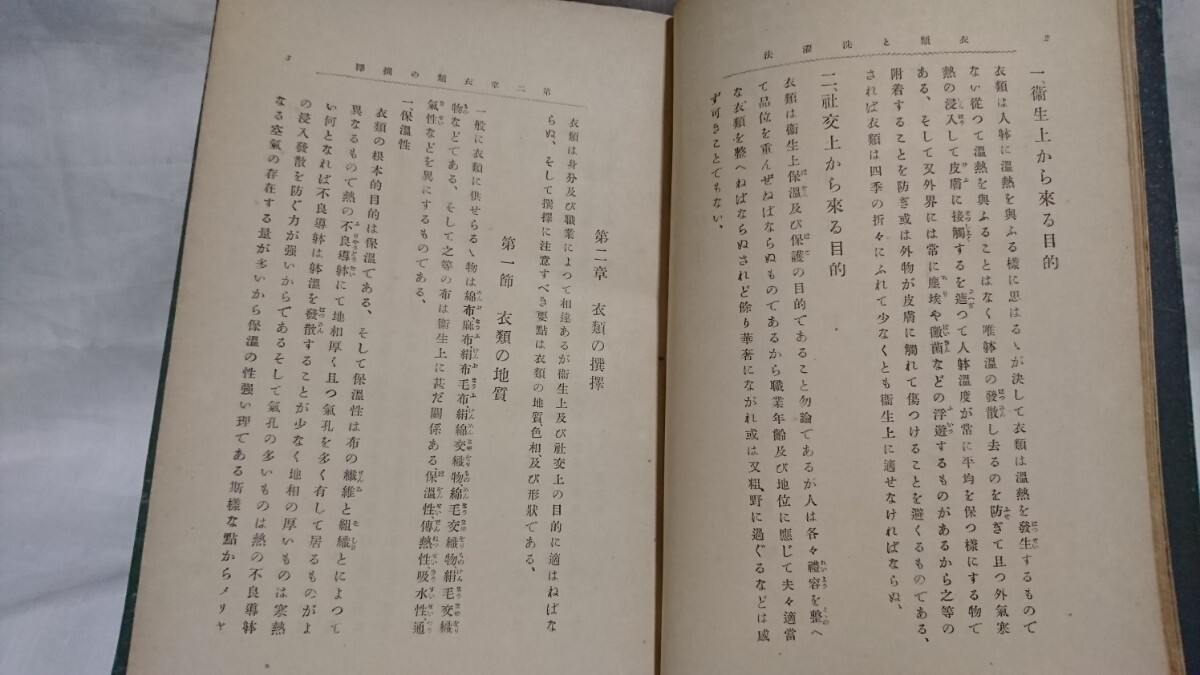 2
衣類と洗濯法
一、衞生上から來る目的
衣類は人躰に溫熱を與ふる樣に思はるゝが決して衣類は溫熱を發生するもので
ない從つて溫熱を與ふることはなく唯躰溫の發散し去るのを防ぎて且つ外氣寒
熱の浸入して皮膚に接觸するを遮つて人躰溫度が常に平均を保つ樣にする物で
ある、そして又外界には常に塵埃や黴菌などの浮遊するものがあるから之等の
附着することを防ぎ或は外物が皮膚に觸れて傷つけることを避くるものである、
されば衣類は四季の折々にふれて少なくとも衞生上に適せなければならぬ、
二、社交上から來る目的
衣類は衞生上保溫及び保護の目的であること勿論であるが人は各々禮容を整へ
て品位を重んぜねばならぬものであるから職業年齡及び地位に應じて夫々適當
な衣類を整へねばならぬされど餘り華奢にながれ或は又粗野に過ぐるなどは感
ず可きことでもない、
第二章衣類の撰擇
3
第二章 衣類の撰擇
衣類は身分及び職業によつて相違あるが衞生上及び社交上の目的に適はねばな
らぬ、そして撰擇に注意すべき要點は衣類の地質、色相、及び形狀である、
第一節 衣類の地質
一般に衣類に供せらるゝ物は綿布、麻布、絹布、毛布、絹綿交織物、綿毛交織物、絹毛交織
物などである、そして之等の布は衞生上に甚だ關係ある、保溫性、傳熱性、吸水性、通
氣性などを異にするものである、
一、保溫性
衣類の根本的目的は保溫である、そして保溫性は布の纎維と組織とによつて
異なるもので熱の不良導躰にて地相厚く且つ氣孔を多く有して居るものがよ
い何となれば不良導躰は躰溫を發散することが少なく地相の厚いものは寒熱
の浸入發散を防ぐ力が強いからであるそして氣孔の多いものは熱の不良導躰
なる空氣の存在する量が多いから保溫の性強い理である斯樣な點からメリヤ